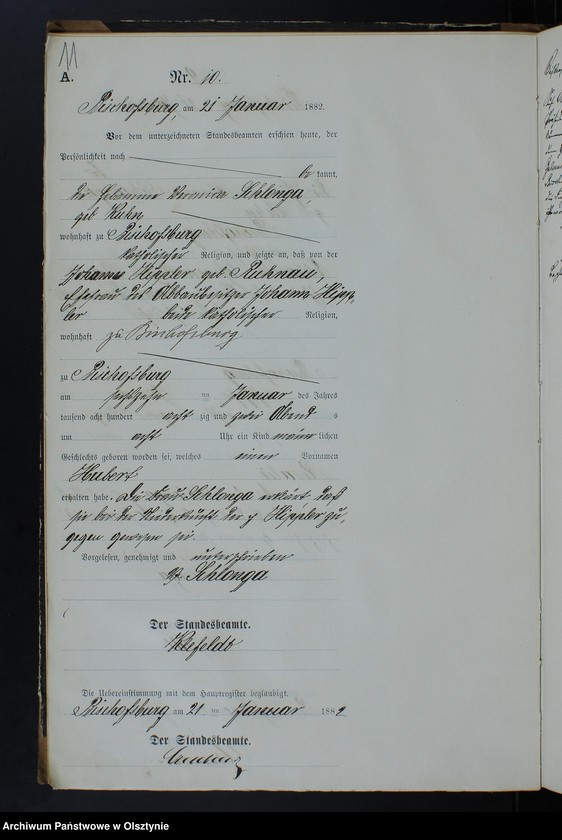 11
A.
Nr. 10.
Bischofsburg, am 21 Januar 1882.
Vor dem unterzeichneten Standesbeamten erschien heute, der
Persönlichkeit nach
be kannt,
die Hebamme Veronica Schlonga,
geb. Kuhn
wohnhaft zu Bischofsburg
katholischer Religion, und zeigte an, daß von der
Johanna Hippler geb. Ruhnau,
Ehefrau des Abbaubesitzer Johann Hipp-
ler beide katholischer Religion,
wohnhaft zu Bischofsburg
zu Bischofsburg
am sechszehn ten Januar des Jahres
tausend acht hundert acht zig und zwei Abend s
um acht Uhr ein Kind männ lichen
Geschlechts geboren worden sei, welches einen Vornamen
Hubert
erhalten habe. Die Frau Schlonga erklärt, daß
sie bei der Niederkunft der p Hippler zu-
gegen gewesen sei.
Vorgelesen, genehmigt und unterschrieben
V. Schlonga
Der Standesbeamte.
Klefeldt
Die Uebereinstimmung mit dem Hauptregister beglaubigt.
Bischofsburg am 21 ten Januar 1882
Der Standesbeamte.
Archiwum Państwowe w Olsztynie